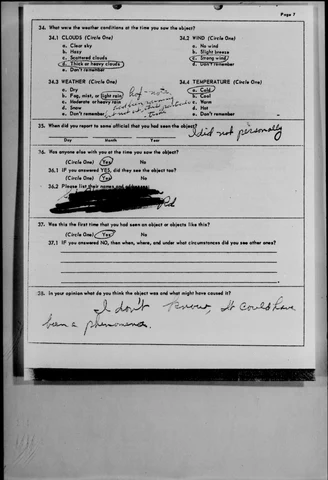 Page 7
34. What were the weather conditions at the time you saw the object?
34.1 CLOUDS (Circle One) 34.2 WIND (Circle One)
a. Clear sky a. No wind
b. Hazy b. Slight breeze
c. Scattered clouds c. Strong wind
d. Thick or heavy clouds d. Don't remember
e. Don't remember
34.3 WEATHER (Circle One) 34.4 TEMPERATURE (Circle One)
a. Dry a. Cold
b. Fog, mist, or light rain b. Cool
c. Moderate or heavy rain c. Warm
d. Snow d. Hot
e. Don't remember e. Don't remember
had been raining
but not at this particular
time
35. When did you report to some official that you had seen the object?
I did not personally
Day Month Year
36. Was anyone else with you at the time you saw the object?
(Circle One) Yes No
36.1 IF you answered YES, did they see the object too?
(Circle One) Yes No
36.2 Please list their names and addresses:
Rd
37. Was this the first time that you had seen an object or objects like this?
(Circle One) Yes No
37.1 IF you answered NO, then when, where, and under what circumstances did you see other ones?
38. In your opinion what do you think the object was and what might have caused it?
I don't know, It could have
been a phenomena.